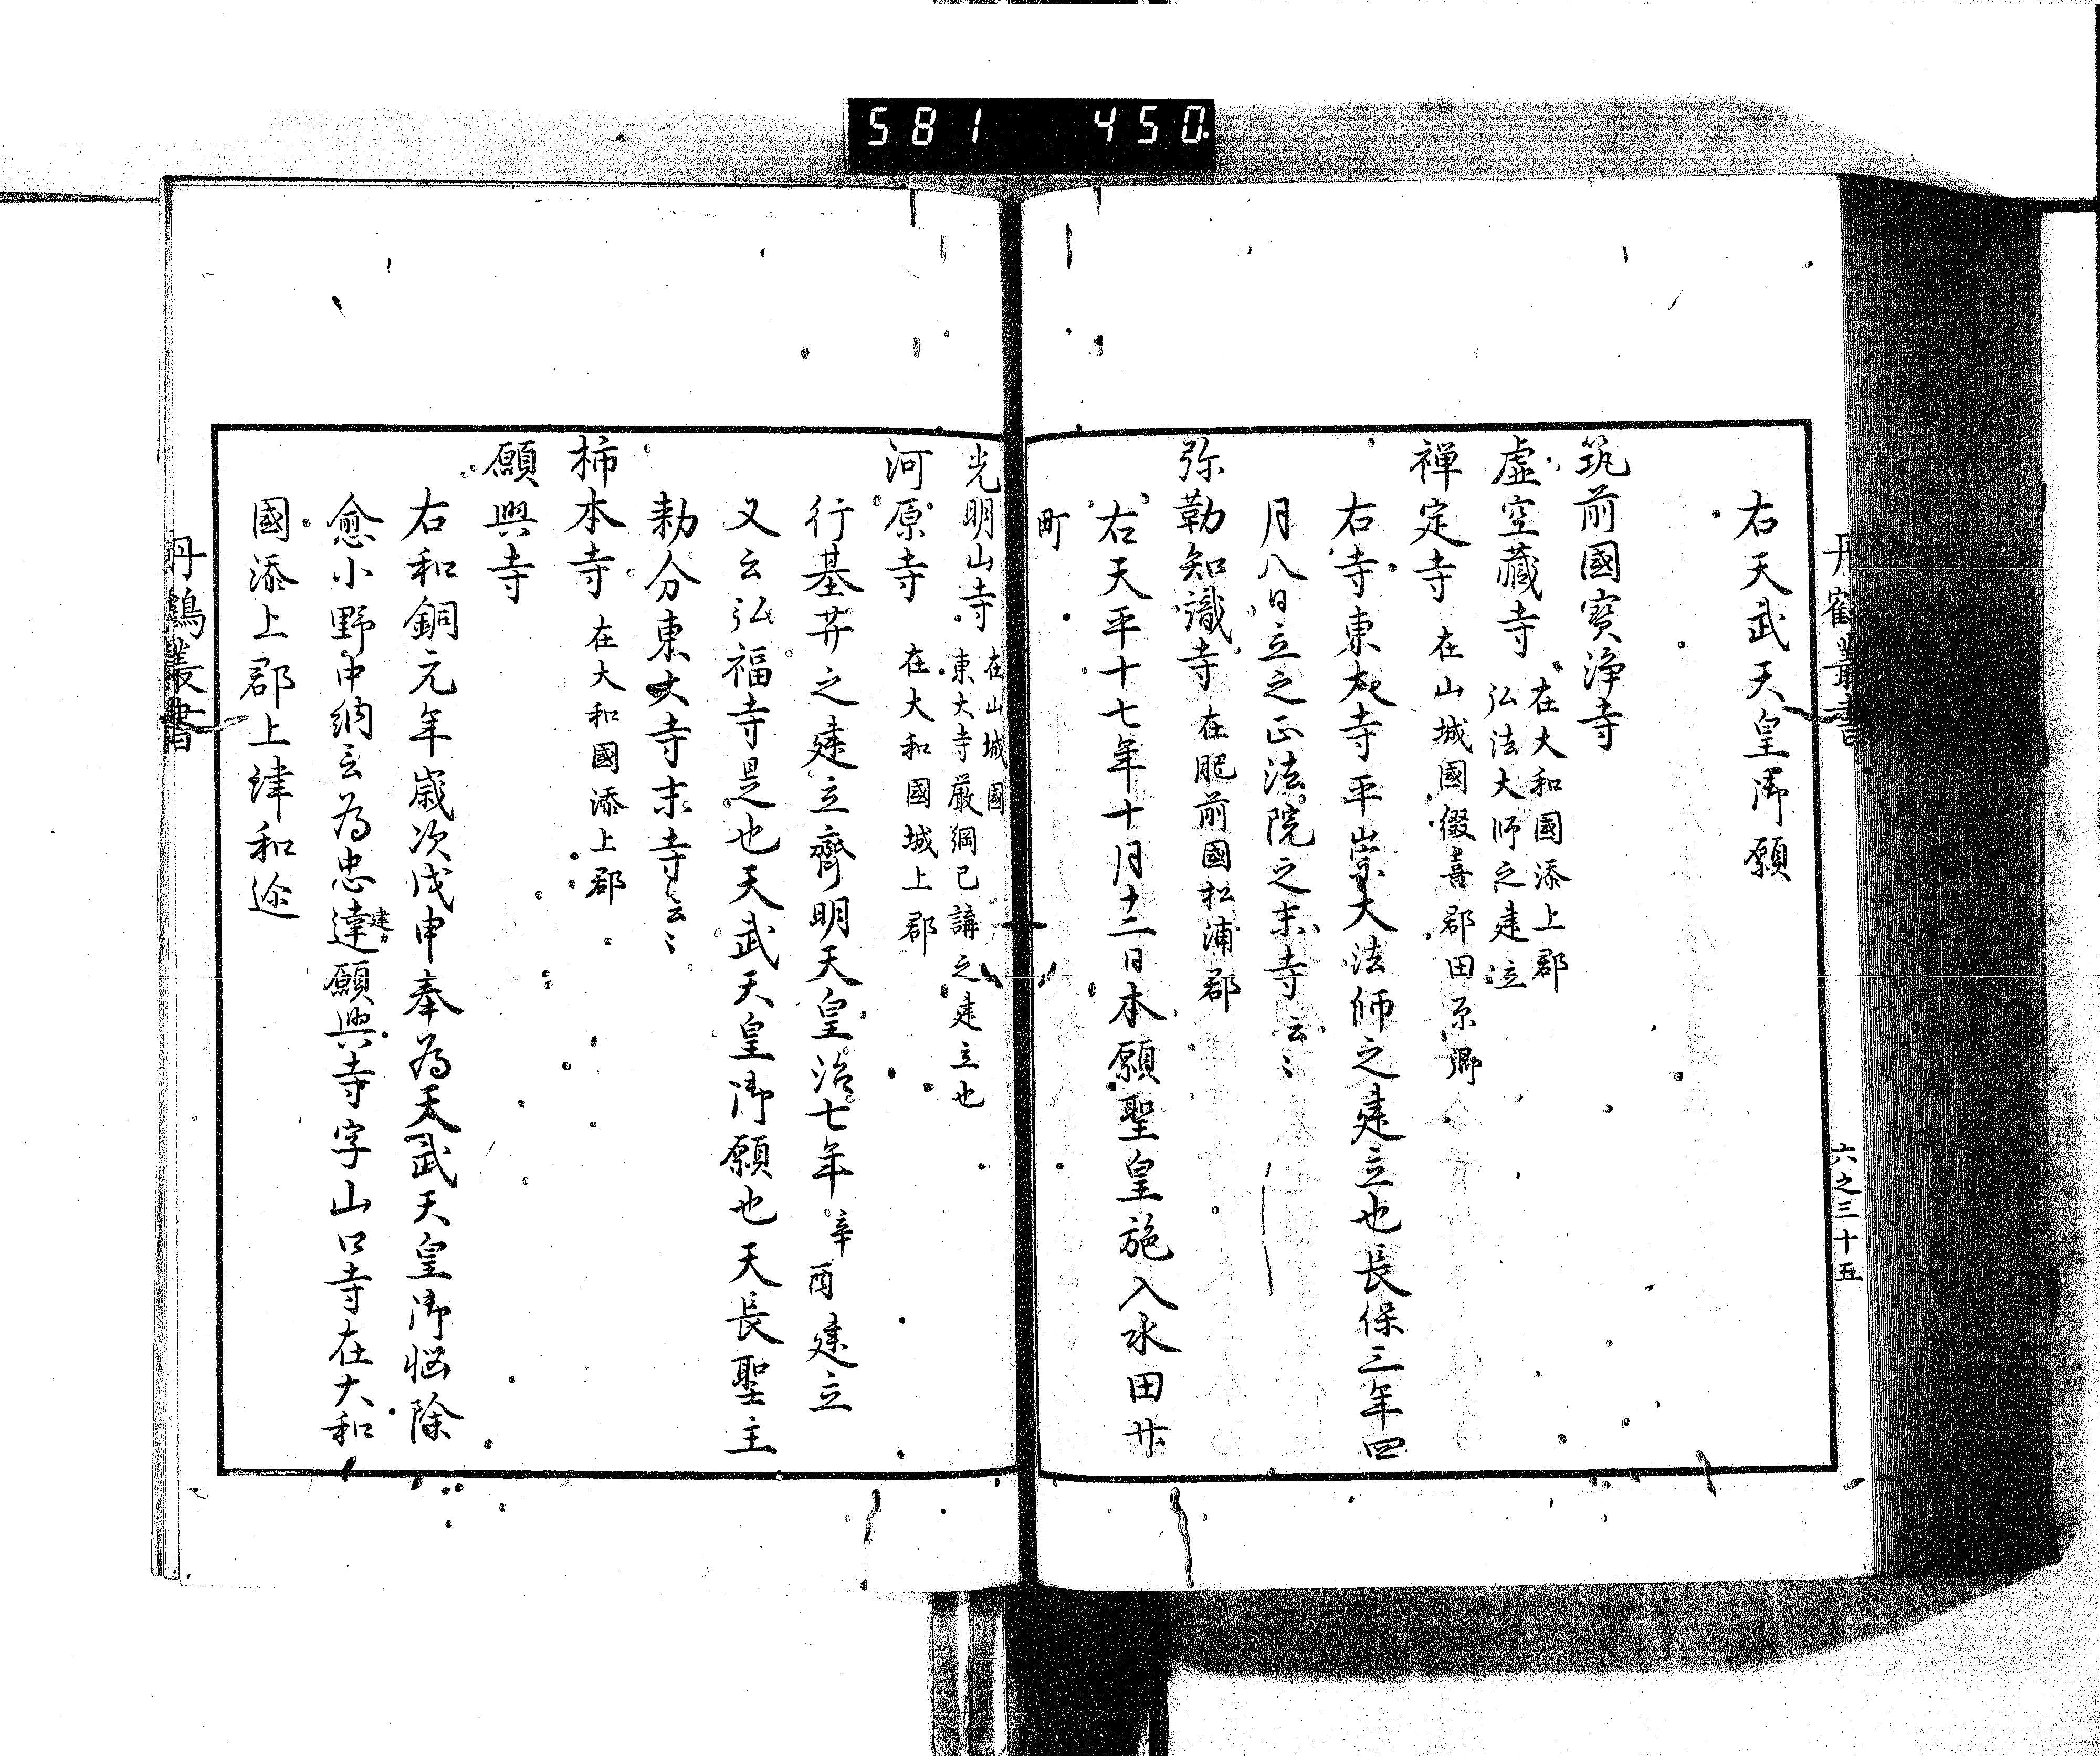 581 450
丹鶴叢書
六之三十五
右天武天皇御願
筑前國寳淨寺
虚空藏寺 在大和國添上郡
弘法大師之建立
禅定寺 在山城國綴喜郡田原郷
右寺東大寺平崇大法師之建立也長保三年四
月八日立之正法院之末寺云〻
弥勒知識寺 在肥前國松浦郡
右天平十七年十月十二日本願聖皇施入水田廿
町
光明山寺 在山城國
東大寺厳綱已講之建立也
河原寺 在大和國城上郡
行基井之建立齊明天皇治七年辛酉建立
又云弘福寺是也天武天皇御願也天長聖主
勅分東大寺末寺云〻
柿本寺 在大和國添上郡
願興寺
右和銅元年歳次戊申奉為天武天皇御悩除
愈小野中納言為忠達願興寺字山口寺在大和
建カ
國添上郡上津和迩
丹鶴叢書